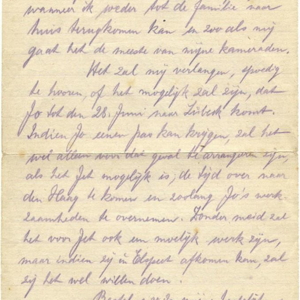 wanneer ik weder tot de familie naar
huis terugkomen kan en zoo als mij
gaat het de meeste van mijne kameraden.
Het zal mij verlangen, spoedig
te hooren, of het mogelijk zal zijn, dat
Jo tot den 28. Juni naar Lübeck komt.
Indien Jo eenen pas kan krijgen, zal het
wel alleen voor dat geval te arrangeren zijn,
als het Jet mogelijk is; de tijd over naar
den Haag te komen en zoolang Jo's werk-
zaamheden te overnemen. Zonder maid zal
het voor Jet ook een moeilijk werk zijn,
maar indien zij in Elspeet afkomen kan, zal
zij het wel willen doen.